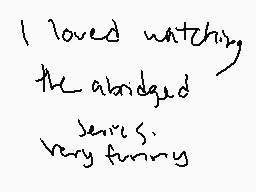 I loved watching
the abridged
series.
very funny